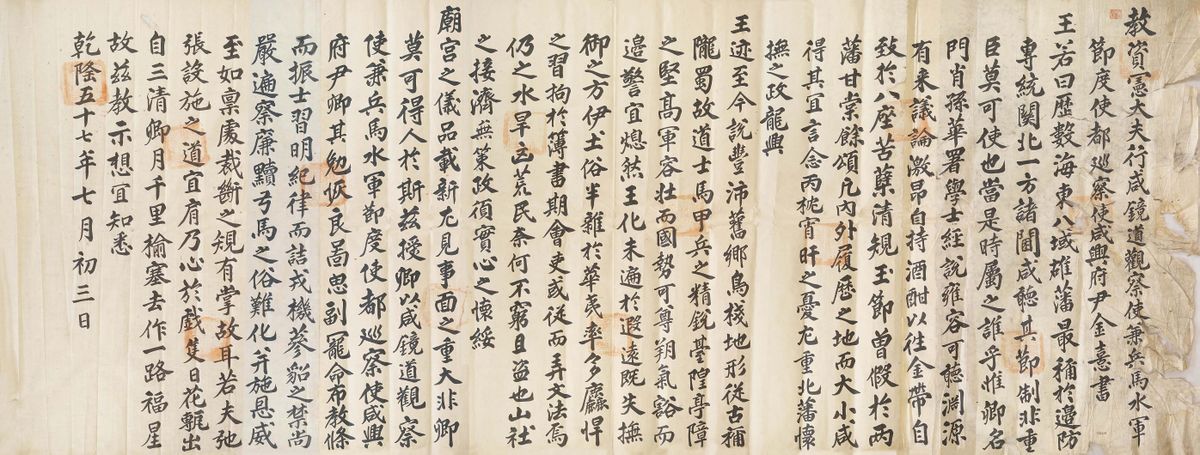 教資憲大夫行咸鏡道觀察使兼兵馬水軍
節度使都巡察使咸興府尹金憙書
王若曰歷數海東八域雄藩最稱於邊防
專統關北一方諸閫咸聽其節制非重
臣莫可使也當是時屬之誰乎惟卿名
門肖孫華署學士經說雍容可聽淵源
有來議論激昂自持酒酣以往金帶自
致於八座苦蘗清規玉節曾假於兩
藩甘棠餘頌凡內外履歷之地而大小咸
得其宜言念丙枕宵旰之憂尤重北藩懷
撫之政龍興
王迹至今說豐沛舊鄉鳥棧地形從古稱
隴蜀故道士馬甲兵之精銳臺隍亭障
之堅高軍容壯而國勢可尊朔氣豁而
邊警宜熄然王化未遍於遐遠既失撫
御之方伊土俗半雜於華夷率多麤悍
之習拘於簿書期會吏或從而弄文法焉
仍之水旱凶荒民奈何不窮且盜也山社
之接濟無策政須實心之懷綏
廟宮之儀品載新尤見事面之重大非卿
莫可得人於斯茲授卿以咸鏡道觀察
使兼兵馬水軍節度使都巡察使咸興
府尹卿其勉恢良啚思副寵命布教條
而振士習明紀律而詰戎機蔘貂之禁尚
嚴遍察廉黷弓馬之俗難化并施恩威
至如稟處裁斷之規有掌故耳若夫弛
張設施之道宜肯乃心於戲隻日花甎出
自三清卿月千里榆塞去作一路福星
故茲教示想宜知悉
乾隆五十七年七月初三日